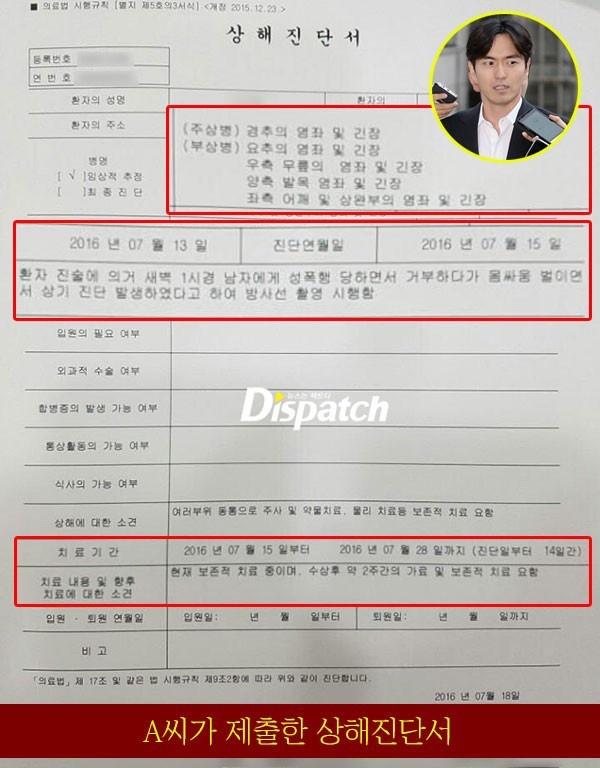 ■ 의료법 시행규칙 [별지 제5호의3서식] <개정 2015.12.23.>
상해진단서
등록번호
연 번 호
환자의 성명
환자의
환자의 주소
병명
[ √ ]임상적 추정
[ ]최종 진단
(주상병) 경추의 염좌 및 긴장
(부상병) 요추의 염좌 및 긴장
우측 무릎의 염좌 및 긴장
양측 발목 염좌 및 긴장
좌측 어깨 및 상완부의 염좌 및 긴장
2016 년 07 월 13 일 진단연월일 2016 년 07 월 15 일
환자 진술에 의거 새벽 1시경 남자에게 성폭행 당하면서 거부하다가 몸싸움 벌이면
서 상기 진단 발생하였다고 하여 방사선 촬영 시행함
입원의 필요 여부
외과적 수술 여부
합병증의 발생 가능 여부
뉴스는 팩트다
Dispatch
통상활동의 가능 여부
식사의 가능 여부
상해에 대한 소견 여러부위 동통으로 주사 및 약물치료, 물리 치료등 보존적 치료 요함
치 료 기 간 2016 년 07 월 15 일부터 2016 년 07 월 28 일까지 (진단일부터 14일간)
치료 내용 및 향후
치료에 대한 소견
현재 보존적 치료 중이며, 수상후 약 2주간의 가료 및 보존적 치료 요함
입원 · 퇴원 연월일 입원일: 년 월 일부터 퇴원일: 년 월 일까지
비 고
「의료법」 제 17조 및 같은 법 시행규칙 제9조2항에 따라 위와 같이 진단합니다.
2016 년 07월 18일
A씨가 제출한 상해진단서